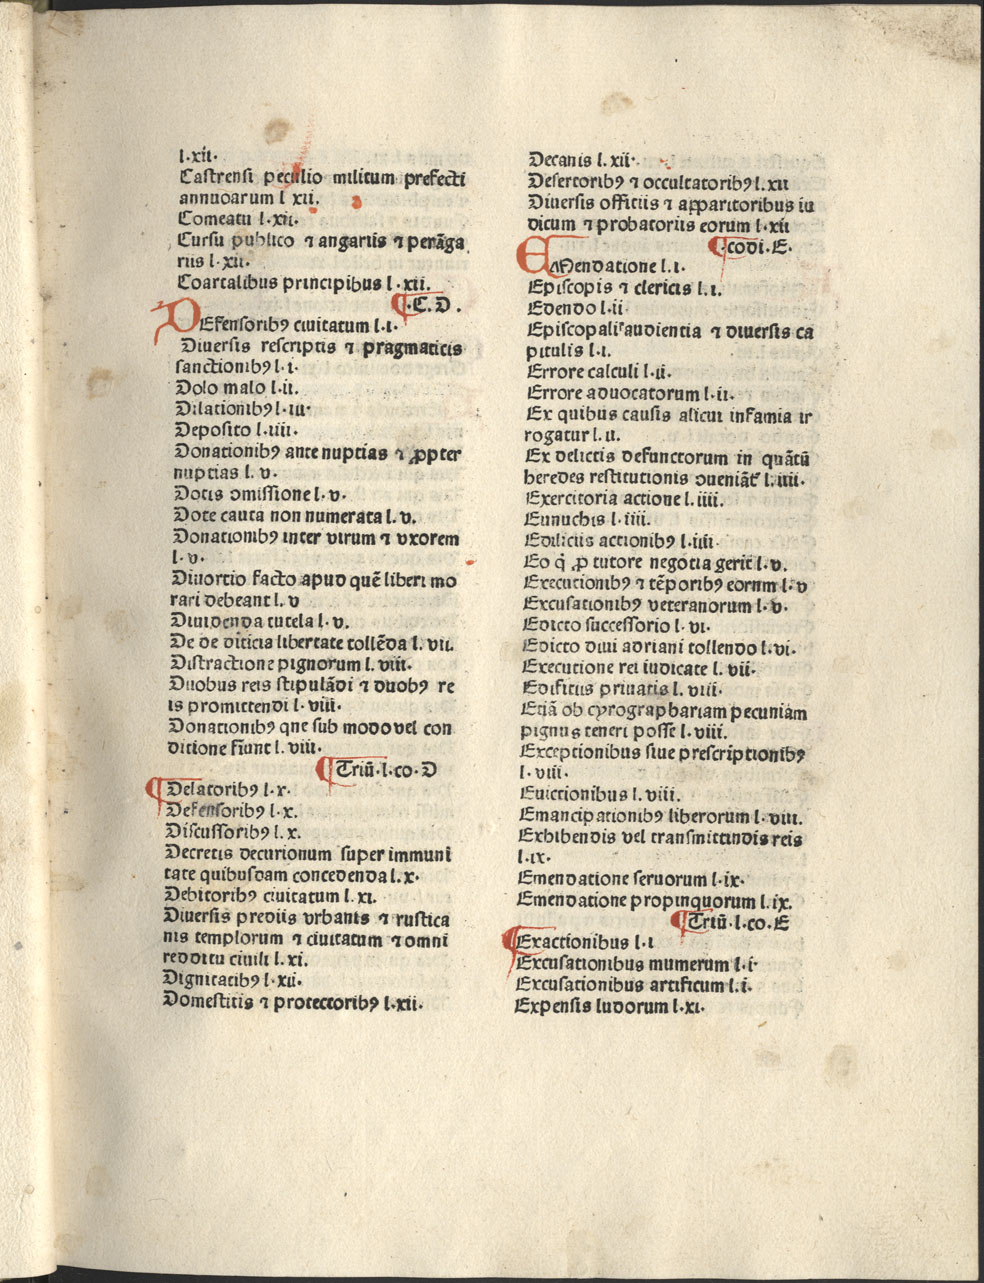 l·xii·
Castrensi peculio militum prefecti
annuoarum l xii.
Comeatu l·xii·
Cursu publico ⁊ angariis ⁊ perāga
riis l·xii·
Coartalibus principibus l·xii.
¶·C.D.
DEfensoribꝰ ciuitatum l·i·
Diuersis rescriptis ⁊ pragmaticis
sanctionibꝰ l·i·
Dolo malo l·ii.
Dilationibꝰ l·iii·
Deposito l·iiii·
Donationibꝰ ante nuptias ⁊ ꝓpter
nuptias l. v·
Dotis ɔmissione l·v·
Dote cauta non numerata l. v.
Donationibꝰ inter virum ⁊ vxorem
l·v·
Diuortio facto apud quē liberi mo
rari debeant l. v
Diuidenda tutela l·v.
De de diticia libertate tollēda l. vii.
Distractione pignorum l. viii·
Duobus reis stipulādi ⁊ duobꝰ re
is promittendi l·viii·
Donationibꝰ qne sub modo vel con
ditione fiunt l. viii·
¶Triū·l·co·D
¶Delatoribꝰ l·x·
Defensoribꝰ l·x.
Discussoribꝰ l. x.
Decretis decurionum super immuni
tate quibusdam concedenda l. x·
Debitoribꝰ ciuitatum l. xi.
Diuersis prediis vrbanis ⁊ rustica
nis templorum ⁊ ciuitatum ⁊ omni
redditu ciuili l. xi.
Dignitatibꝰ l·xii·
Domesticis ⁊ protectoribꝰ l·xii·
Decanis l. xii·
Desertoribꝰ ⁊ occultatoribꝰ l. xii
Diuersis officiis ⁊ apparitoribus iu
dicum ⁊ probatoriis eorum l·xii
¶·codi·E·
EMendatione l. i·
Episcopis ⁊ clericis l. i.
Edendo l·ii·
Episcopali audientia ⁊ diuersis ca
pitulis l·i.
Errore calculi l·ii.
Errore aduocatorum l·ii·
Ex quibus causis alicui infamia ir
rogatur l. ii.
Ex delictis defunctorum in quātū
heredes restitutionis ɔueniāt l. iiii·
Exercitoria actione l. iiii.
Eunuchis l. iiii.
Ediliciis actionibꝰ l·iiii·
Eo q̇ ꝓ tutore negotia gerit l·v.
Executionibꝰ ⁊ tēporibꝰ eornm l·v
Excusationibꝰ veteranorum l·v·
Edicto successorio l·vi·
Edicto diui adriani tollendo l·vi·
Executione rei iudicate l. vii·
Edificiis priuatis l. viii·
Etiā ob cyrographariam pecuniam
pignus teneri posse l·viii.
Exceptionibus siue prescriptionibꝰ
l·viii·
Euictionibus l. viii.
Emancipationibꝰ liberorum l·viii.
Exhibendis vel transmittindis reis
l·ix·
Emendatione seruorum l·ix·
Emendatione propinquorum l. ix.
¶Triū·l·co·E
¶Exactionibus l·i
Excusationibus mumerum l·i·
Excusationibus artificum l·i.
Expensis ludorum l·xi·